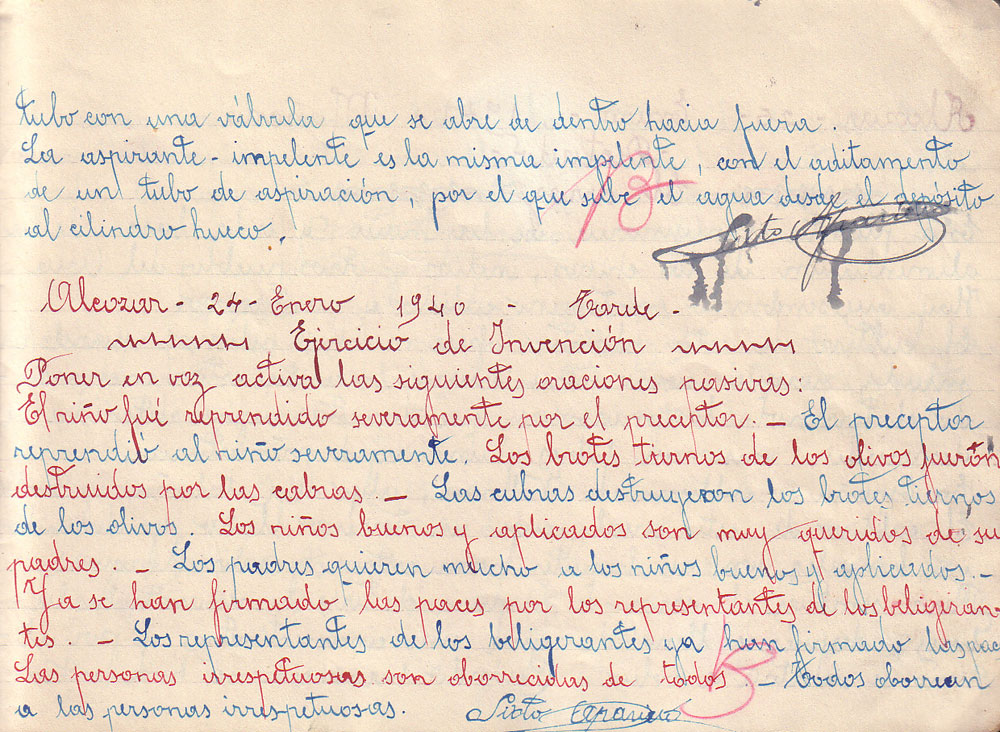 tubo con una válvula que se abre de dentro hacia fuera.
La aspirante-impelente es la misma impelente, con el aditamento
de un tubo de aspiración, por el que sube el agua desde el depósito
al cilindro hueco.
Sixto Aparicio
Alcozar - 24 - Enero 1940 - Tarde -
Ejercicio de Invención
Poner en voz activa las siguientes oraciones pasivas:
El niño fué reprendido severamente por el preceptor. - El preceptor
reprendió al niño severamente. Los brotes tiernos de los olivos fuerón
destruidos por las cabras - Las cabras destruyeron los brotes tiernos
de los olivos. Los niños buenos y aplicados son muy queridos de su
padres. - Los padres quieren mucho a los niños buenos y aplicados. -
Ya se han firmado las paces por los representantes de los beligeran-
tes. - Los representantes de los beligerantes ya han firmado las pac
Las personas irrespetuosas son aborrecidas de todos - Todos aborrecen
a las personas irrespetuosas.
Sixto Aparicio